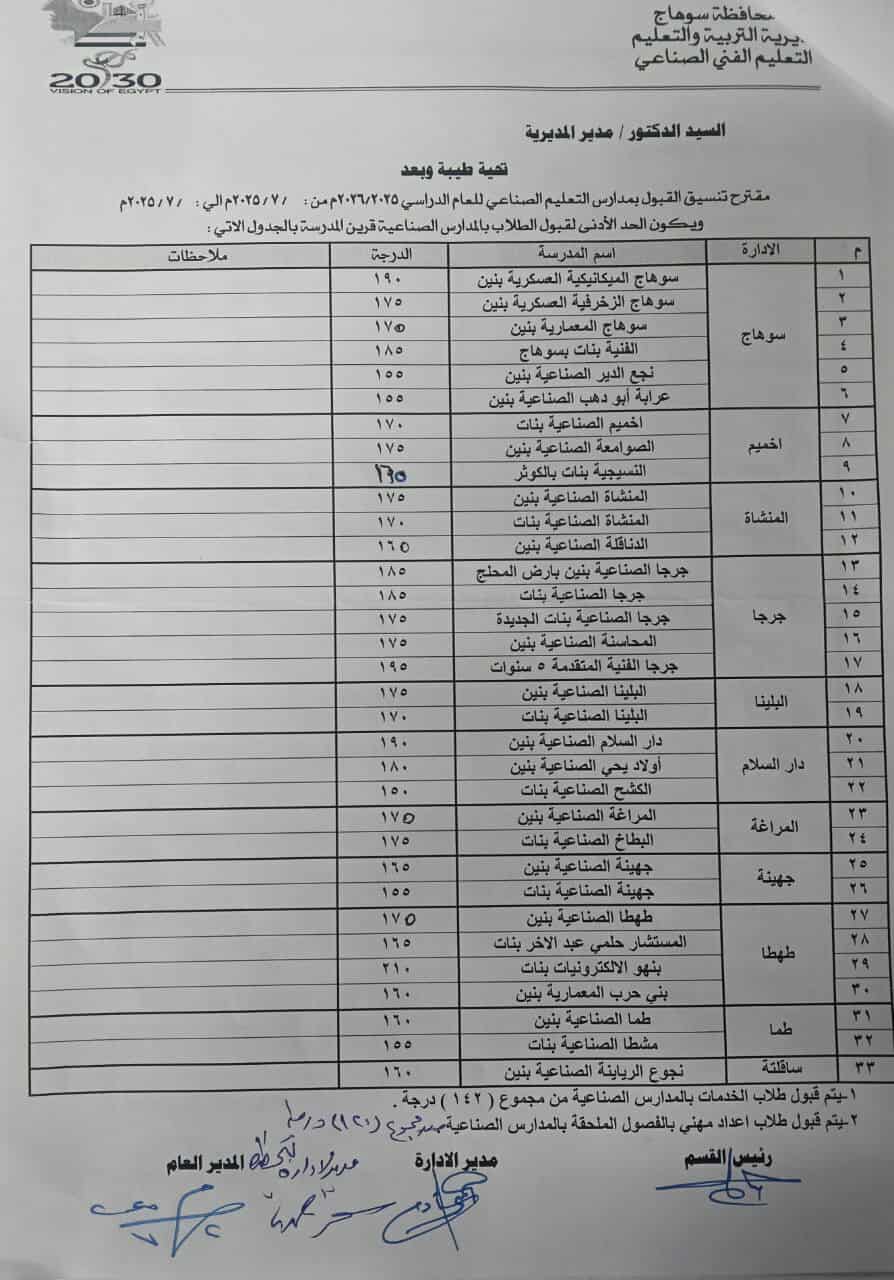 محافظة سوهاج
مديرية التربية والتعليم
التعليم الفني الصناعي
2030
VISION OF EGYPT
السيد الدكتور / مدير المديرية
تحية طيبة وبعد
مقترح تنسيق القبول بمدارس التعليم الصناعي للعام الدراسي ٢٠٢٦/٢٠٢٥م من : ٢٠٢٥/٧/ م الي : ٢٠٢٥/٧/ م
ويكون الحد الأدنى لقبول الطلاب بالمدارس الصناعية قرين المدرسة بالجدول الاتي :
م الادارة اسم المدرسة الدرجة ملاحظات
١ سوهاج سوهاج الميكانيكية العسكرية بنين ١٩٠
٢ سوهاج الزخرفية العسكرية بنين ١٧٥
٣ سوهاج المعمارية بنين ١٧٥
٤ الفنية بنات بسوهاج ١٨٥
٥ نجع الدير الصناعية بنين ١٥٥
٦ عرابة أبو دهب الصناعية بنين ١٥٥
٧ اخميم اخميم الصناعية بنات ١٧٠
٨ الصوامعة الصناعية بنين ١٧٥
٩ النسيجية بنات بالكوثر
١٠ المنشاة المنشاة الصناعية بنين ١٧٥
١١ المنشاة الصناعية بنات ١٧٠
١٢ الدناقلة الصناعية بنين ١٦٥
١٣ جرجا جرجا الصناعية بنين بارض المحلج ١٨٥
١٤ جرجا الصناعية بنات ١٨٥
١٥ جرجا الصناعية بنات الجديدة ١٧٥
١٦ المحاسنة الصناعية بنين ١٧٥
١٧ جرجا الفنية المتقدمة ٥ سنوات ١٩٥
١٨ البلينا البلينا الصناعية بنين ١٧٥
١٩ البلينا الصناعية بنات ١٧٠
٢٠ دار السلام دار السلام الصناعية بنين ١٩٠
٢١ أولاد يحي الصناعية بنين ١٨٠
٢٢ الكشح الصناعية بنات ١٥٠
٢٣ المراغة المراغة الصناعية بنين ١٧٥
٢٤ البطاخ الصناعية بنات ١٧٥
٢٥ جهينة جهينة الصناعية بنين ١٦٥
٢٦ جهينة الصناعية بنات ١٥٥
٢٧ طهطا طهطا الصناعية بنين ١٧٥
٢٨ المستشار حلمي عبد الاخر بنات ١٦٥
٢٩ بنهو الالكترونيات بنات ٢١٠
٣٠ بني حرب المعمارية بنين ١٦٠
٣١ طما طما الصناعية بنين ١٦٠
٣٢ مشطا الصناعية بنات ١٥٥
٣٣ ساقلتة نجوع الرياينة الصناعية بنين ١٦٠
١-يتم قبول طلاب الخدمات بالمدارس الصناعية من مجموع ( ١٤٢ ) درجة .
٢-يتم قبول طلاب اعداد مهني بالفصول الملحقة بالمدارس الصناعية من مجموع (١٢٠) درجة
رئيس القسم مدير الادارة مدير ادارة المدير العام